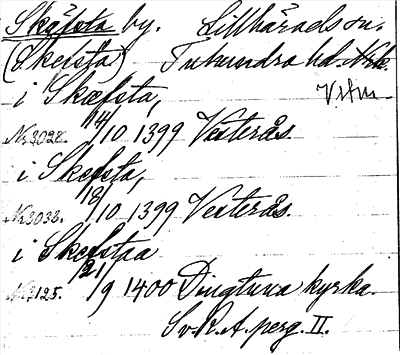 Skäfsta by. Lillhärads sn.
(Skeista) Tuhundra hd.
Vstm
i Skæfsta,
Nr 3028. 14/10 1399 Vesterås
i Skefsta,
Nr 3038. 18/10 1399 Vesterås.
i Skefstaa
Nr 3125. 21/9 1400 Dingtuna kyrka.
Sv. R. A. perg. II.